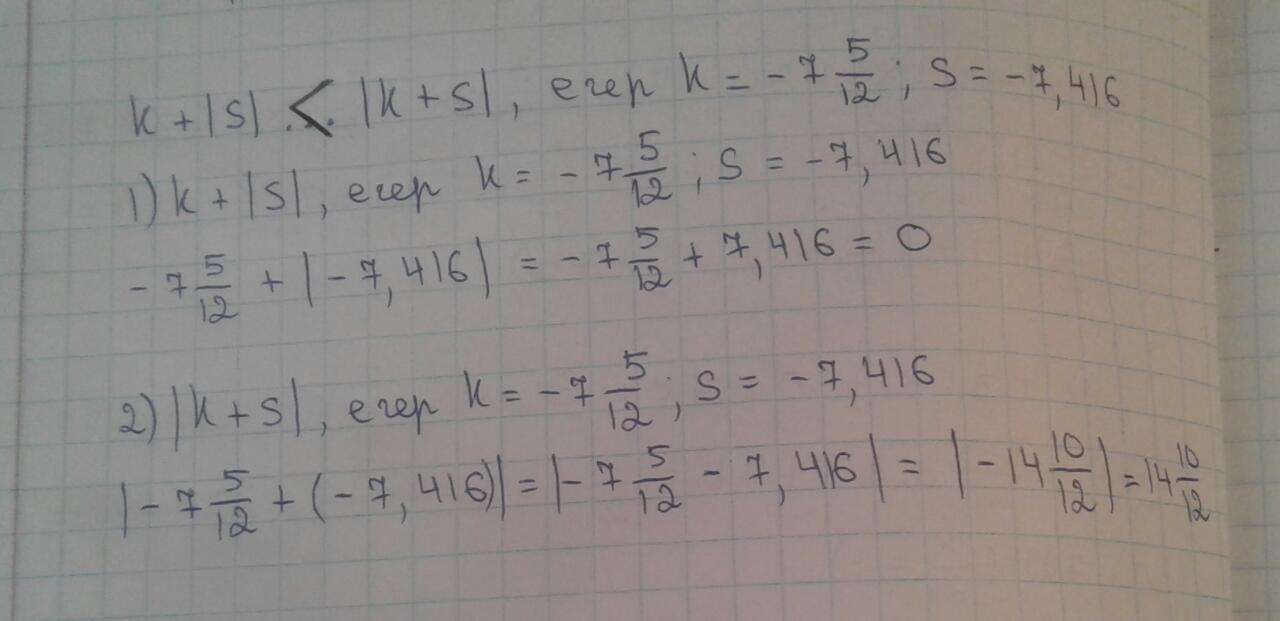 k + |S| .<. |k + S|, егер k = - 7 5/12 ; S = - 7,416
1) k + |S|, егер k = - 7 5/12 ; S = - 7,416
- 7 5/12 + | - 7,416 | = - 7 5/12 + 7,416 = 0
2) |k + S|, егер k = - 7 5/12 ; S = - 7,416
| - 7 5/12 + (- 7,416)| = |- 7 5/12 - 7,416 | = | - 14 10/12 | = 14 10/12